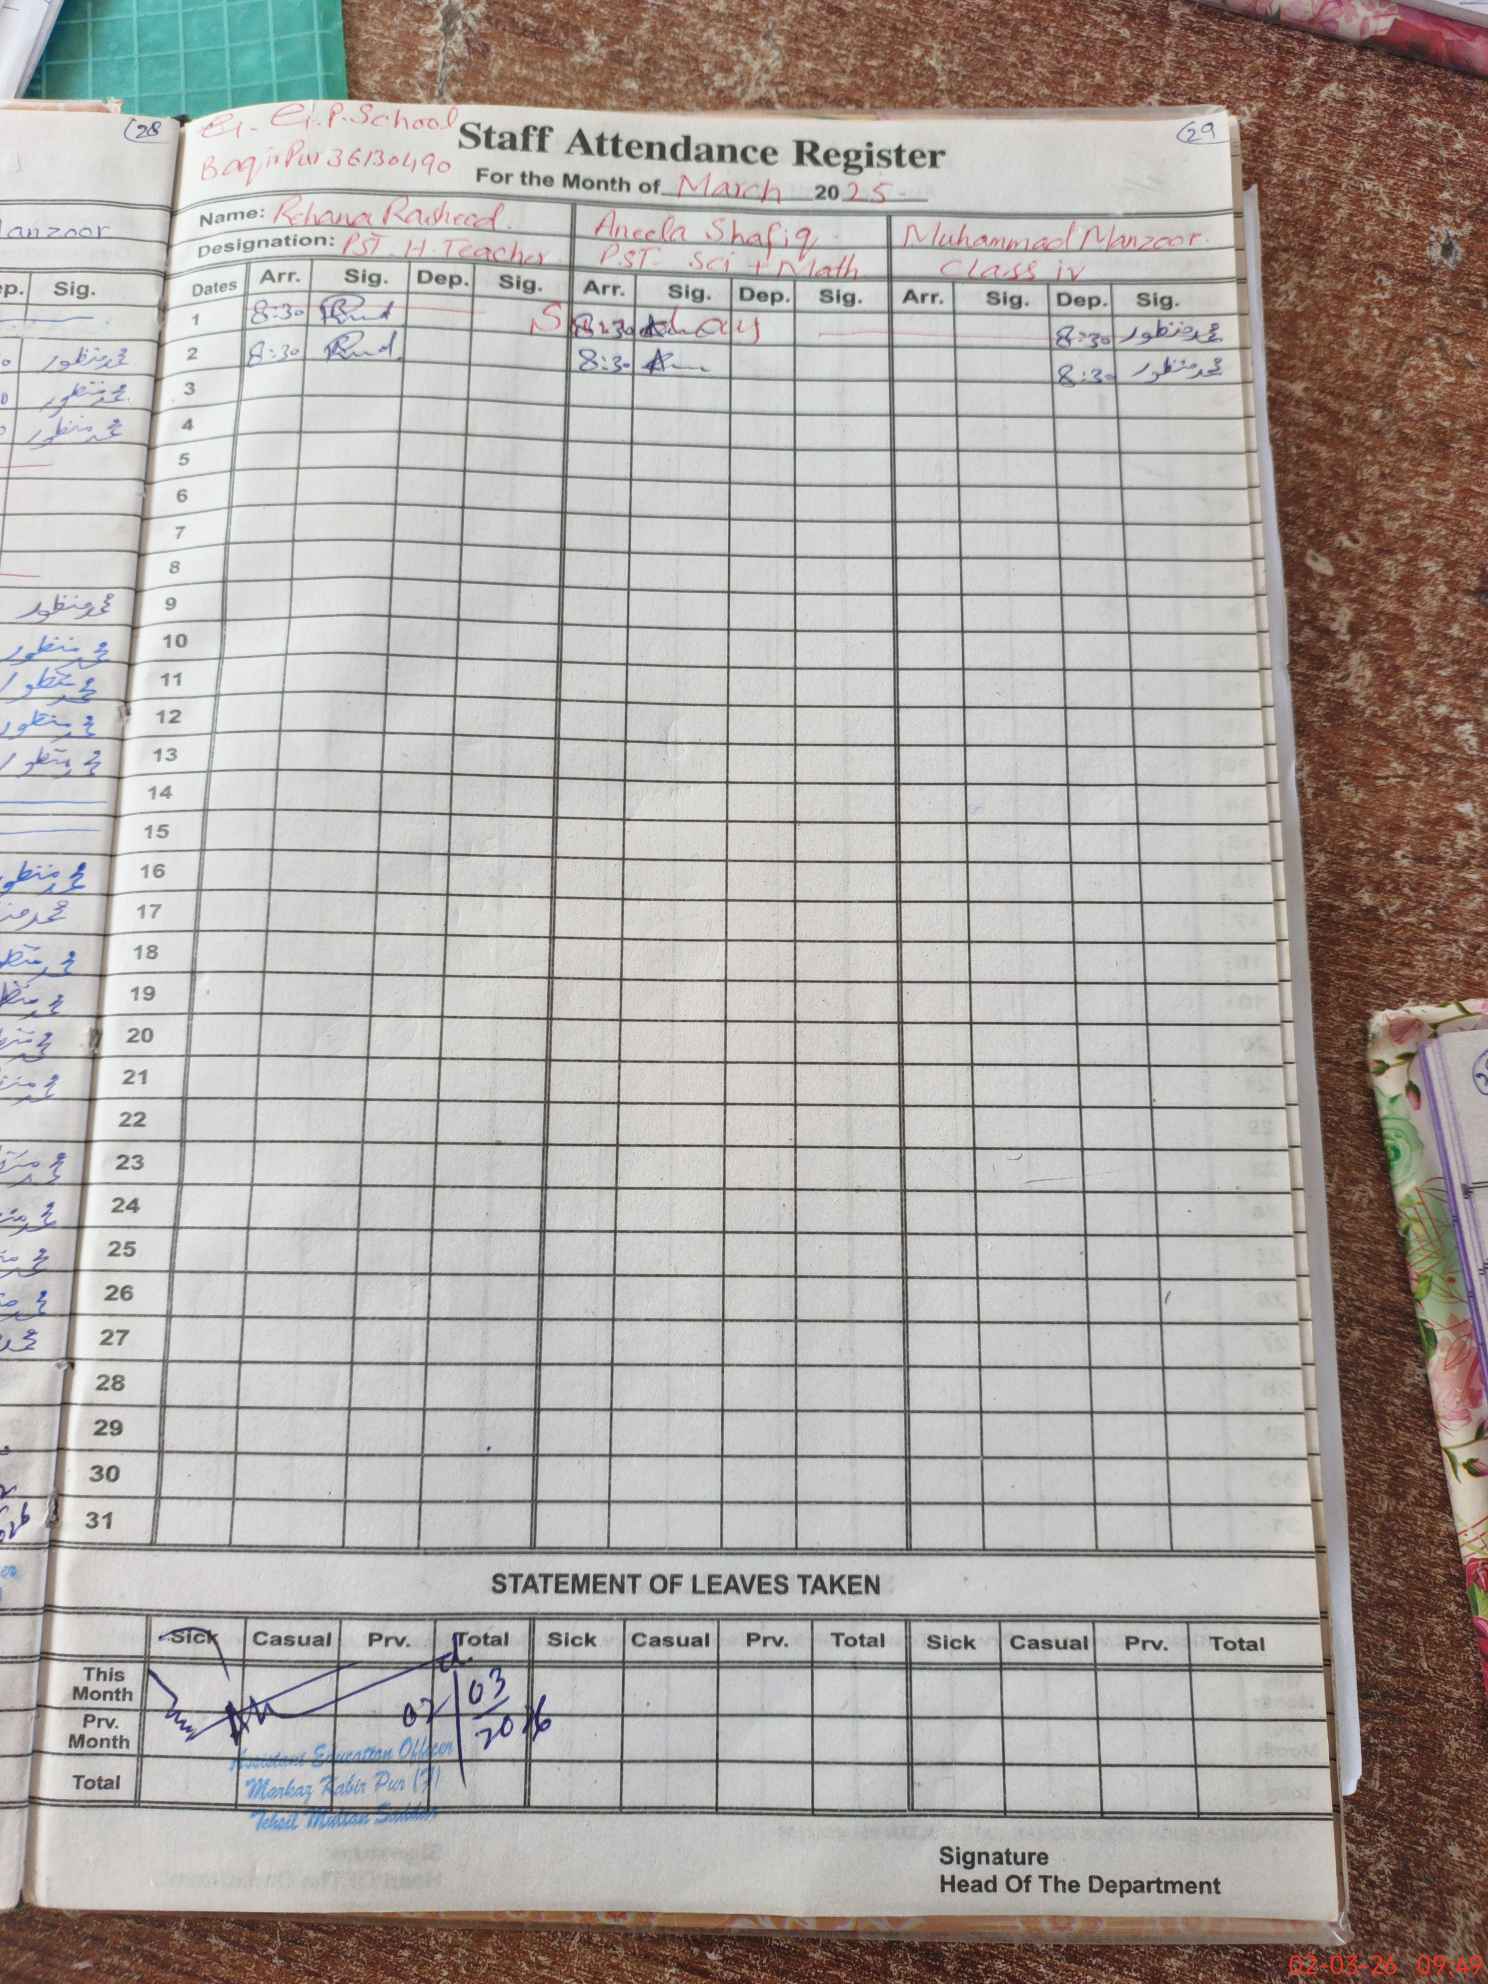 28
anzoor
ep. Sig.
محمد منظور
محمد منظور
محمد منظور
محمد منظور
محمد منظور
محمد منظور
محمد منظور
محمد منظور
G. G.P. School
Baqir Pur 36130490
Staff Attendance Register
29
For the Month of March 2025
Name: Rehana Rasheed. Aneela Shafiq Muhammad Manzoor.
Designation: PST. H. Teacher PST- Sci + Math Class iv
Dates Arr. Sig. Dep. Sig. Arr. Sig. Dep. Sig. Arr. Sig. Dep. Sig.
1 8:30 Sunday 8:30 8:30 محمد منظور
2 8:30 8:30 8:30 محمد منظور
3
4
5
6
7
8
9
10
11
12
13
14
15
16
17
18
19
20
21
22
23
24
25
26
27
28
29
30
31
STATEMENT OF LEAVES TAKEN
Sick Casual Prv. Total Sick Casual Prv. Total Sick Casual Prv. Total
This Month
Prv. Month
Total
02 03
2026
Assistant Education Officer
Markaz Kabir Pur (F)
Tehsil Multan Saddar
Signature
Head Of The Department
02-03-26 09:49